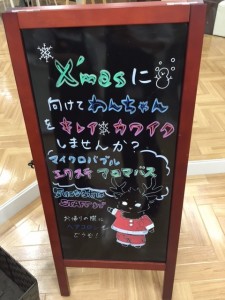 X'masに
向けてわんちゃん
をキレイ カワイク
しませんか?
マイクロバブル
エクステ アロマバス
お帰りの際に
どうぞ!